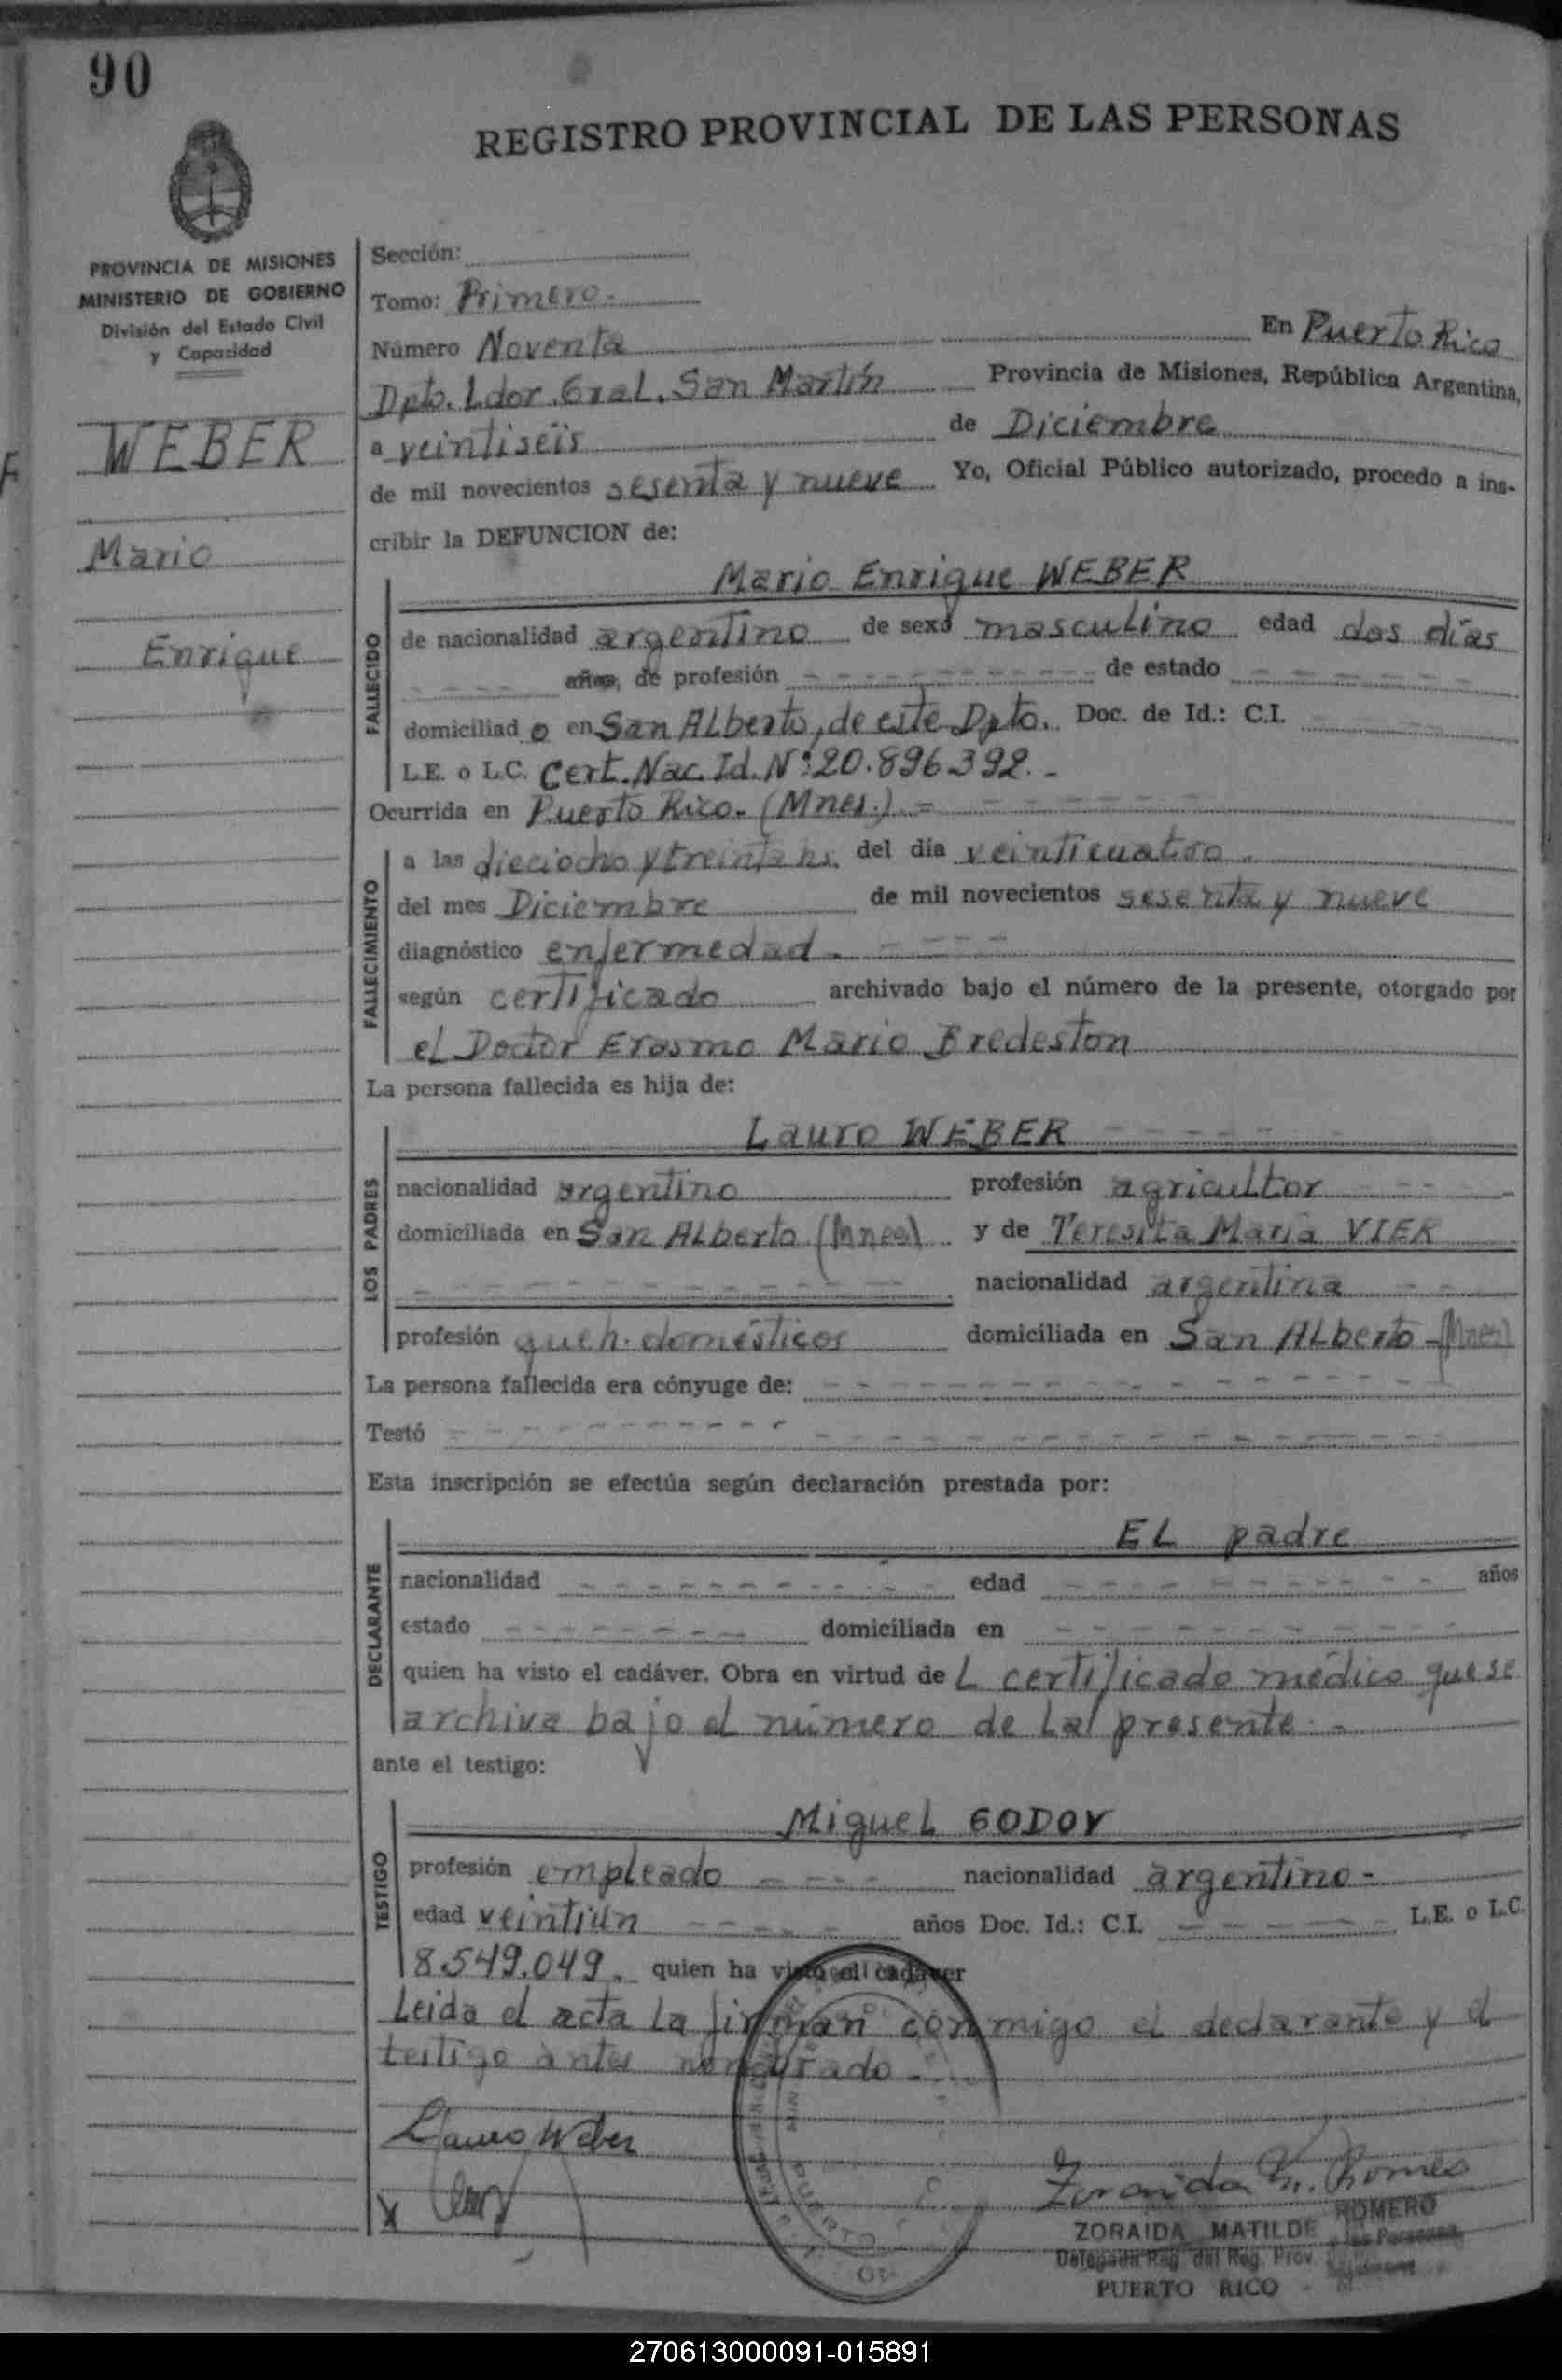 90
REGISTRO PROVINCIAL DE LAS PERSONAS
PROVINCIA DE MISIONES
MINISTERIO DE GOBIERNO
División del Estado Civil
y Capacidad
WEBER
Mario
Enrique
Sección:
Tomo: Primero.
Número Noventa En Puerto Rico
Dpto. Ldor. Gral. San Martín Provincia de Misiones, República Argentina,
a veintiséis de Diciembre
de mil novecientos sesenta y nueve Yo, Oficial Público autorizado, procedo a ins-
cribir la DEFUNCION de:
Mario Enrique WEBER
FALLECIDO
de nacionalidad argentino de sexo masculino edad dos días
años, de profesión de estado
domiciliad o en San Alberto, de este Dpto. Doc. de Id.: C.I.
L.E. o L.C. Cert. Nac. Id. Nº: 20.896.392. -
Ocurrida en Puerto Rico - (Mnes.) =
FALLECIMIENTO
a las dieciocho y treinta hs. del día veinticuatro.
del mes Diciembre de mil novecientos sesenta y nueve
diagnóstico enfermedad.
según certificado archivado bajo el número de la presente, otorgado por
el Doctor Erasmo Mario Bredeston
La persona fallecida es hija de:
Lauro WEBER
LOS PADRES
nacionalidad argentino profesión agricultor
domiciliada en San Alberto (Mnes) y de Teresita María VIER
nacionalidad argentina
profesión queh. domésticos domiciliada en San Alberto - (Mnes)
La persona fallecida era cónyuge de:
Testó
Esta inscripción se efectúa según declaración prestada por:
EL padre
DECLARANTE
nacionalidad edad años
estado domiciliada en
quien ha visto el cadáver. Obra en virtud de L certificado médico que se
archiva bajo el número de la presente. -
ante el testigo:
Miguel GODOY
TESTIGO
profesión empleado nacionalidad argentino -
edad veintiún años Doc. Id.: C.I. L.E. o L.C.
8.549.049. quien ha visto el cadáver
Leida el acta la firman conmigo el declarante y el
testigo antes nombrado. -
Lauro Weber
Zoraida M. Romero
ZORAIDA MATILDE ROMERO
Delegada Reg. del Reg. Prov. las Personas
PUERTO RICO
270613000091-015891